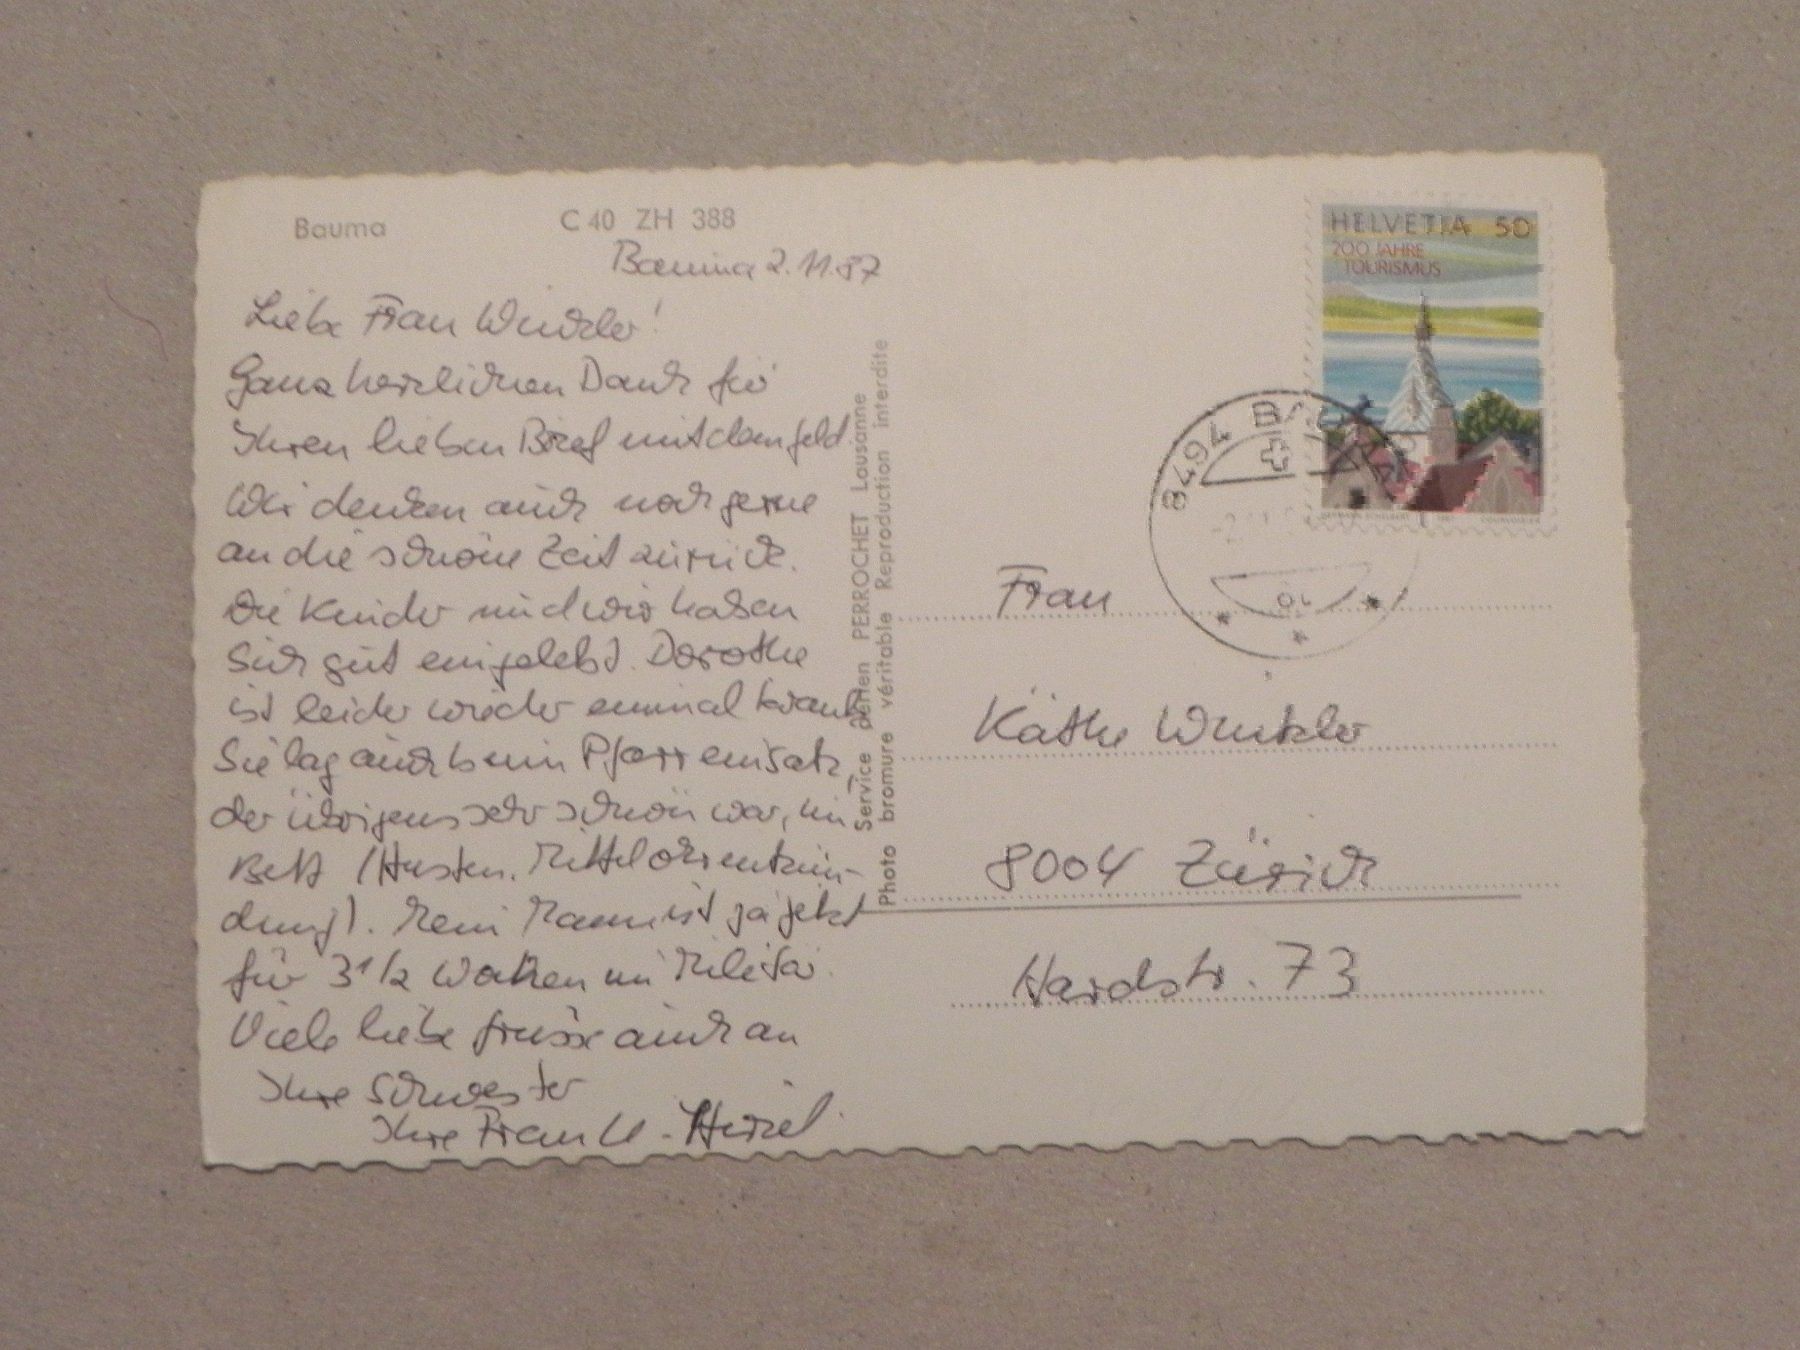 Bauma C 40 ZH 388
Bauma 2.11.87
Liebe Frau Winkler!
Ganz herzlichen Dank für
Ihren lieben Brief mit dem Geld
Wir denken auch noch gerne
an die schöne Zeit zurück.
Die Kinder und wir haben
sich gut eingelebt. Dorothe
ist leider wieder einmal krank
Sie lag auch beim Pfarreinsatz,
der übrigens sehr schön war, im
Bett (Husten, Mittelohrentzün-
dung). Mein Mann ist ja jetzt
für 3 1/2 Wochen im Militär.
Viele liebe Grüsse auch an
Ihre Schwester
Ihre Frau U. Hirzel
Service aérien PERROCHET Lausanne
Photo bromure véritable Reproduction interdite
HELVETIA 50
200 JAHRE
TOURISMUS
8494 BAUMA
Frau
Käthe Winkler
8004 Zürich
Hardstr. 73